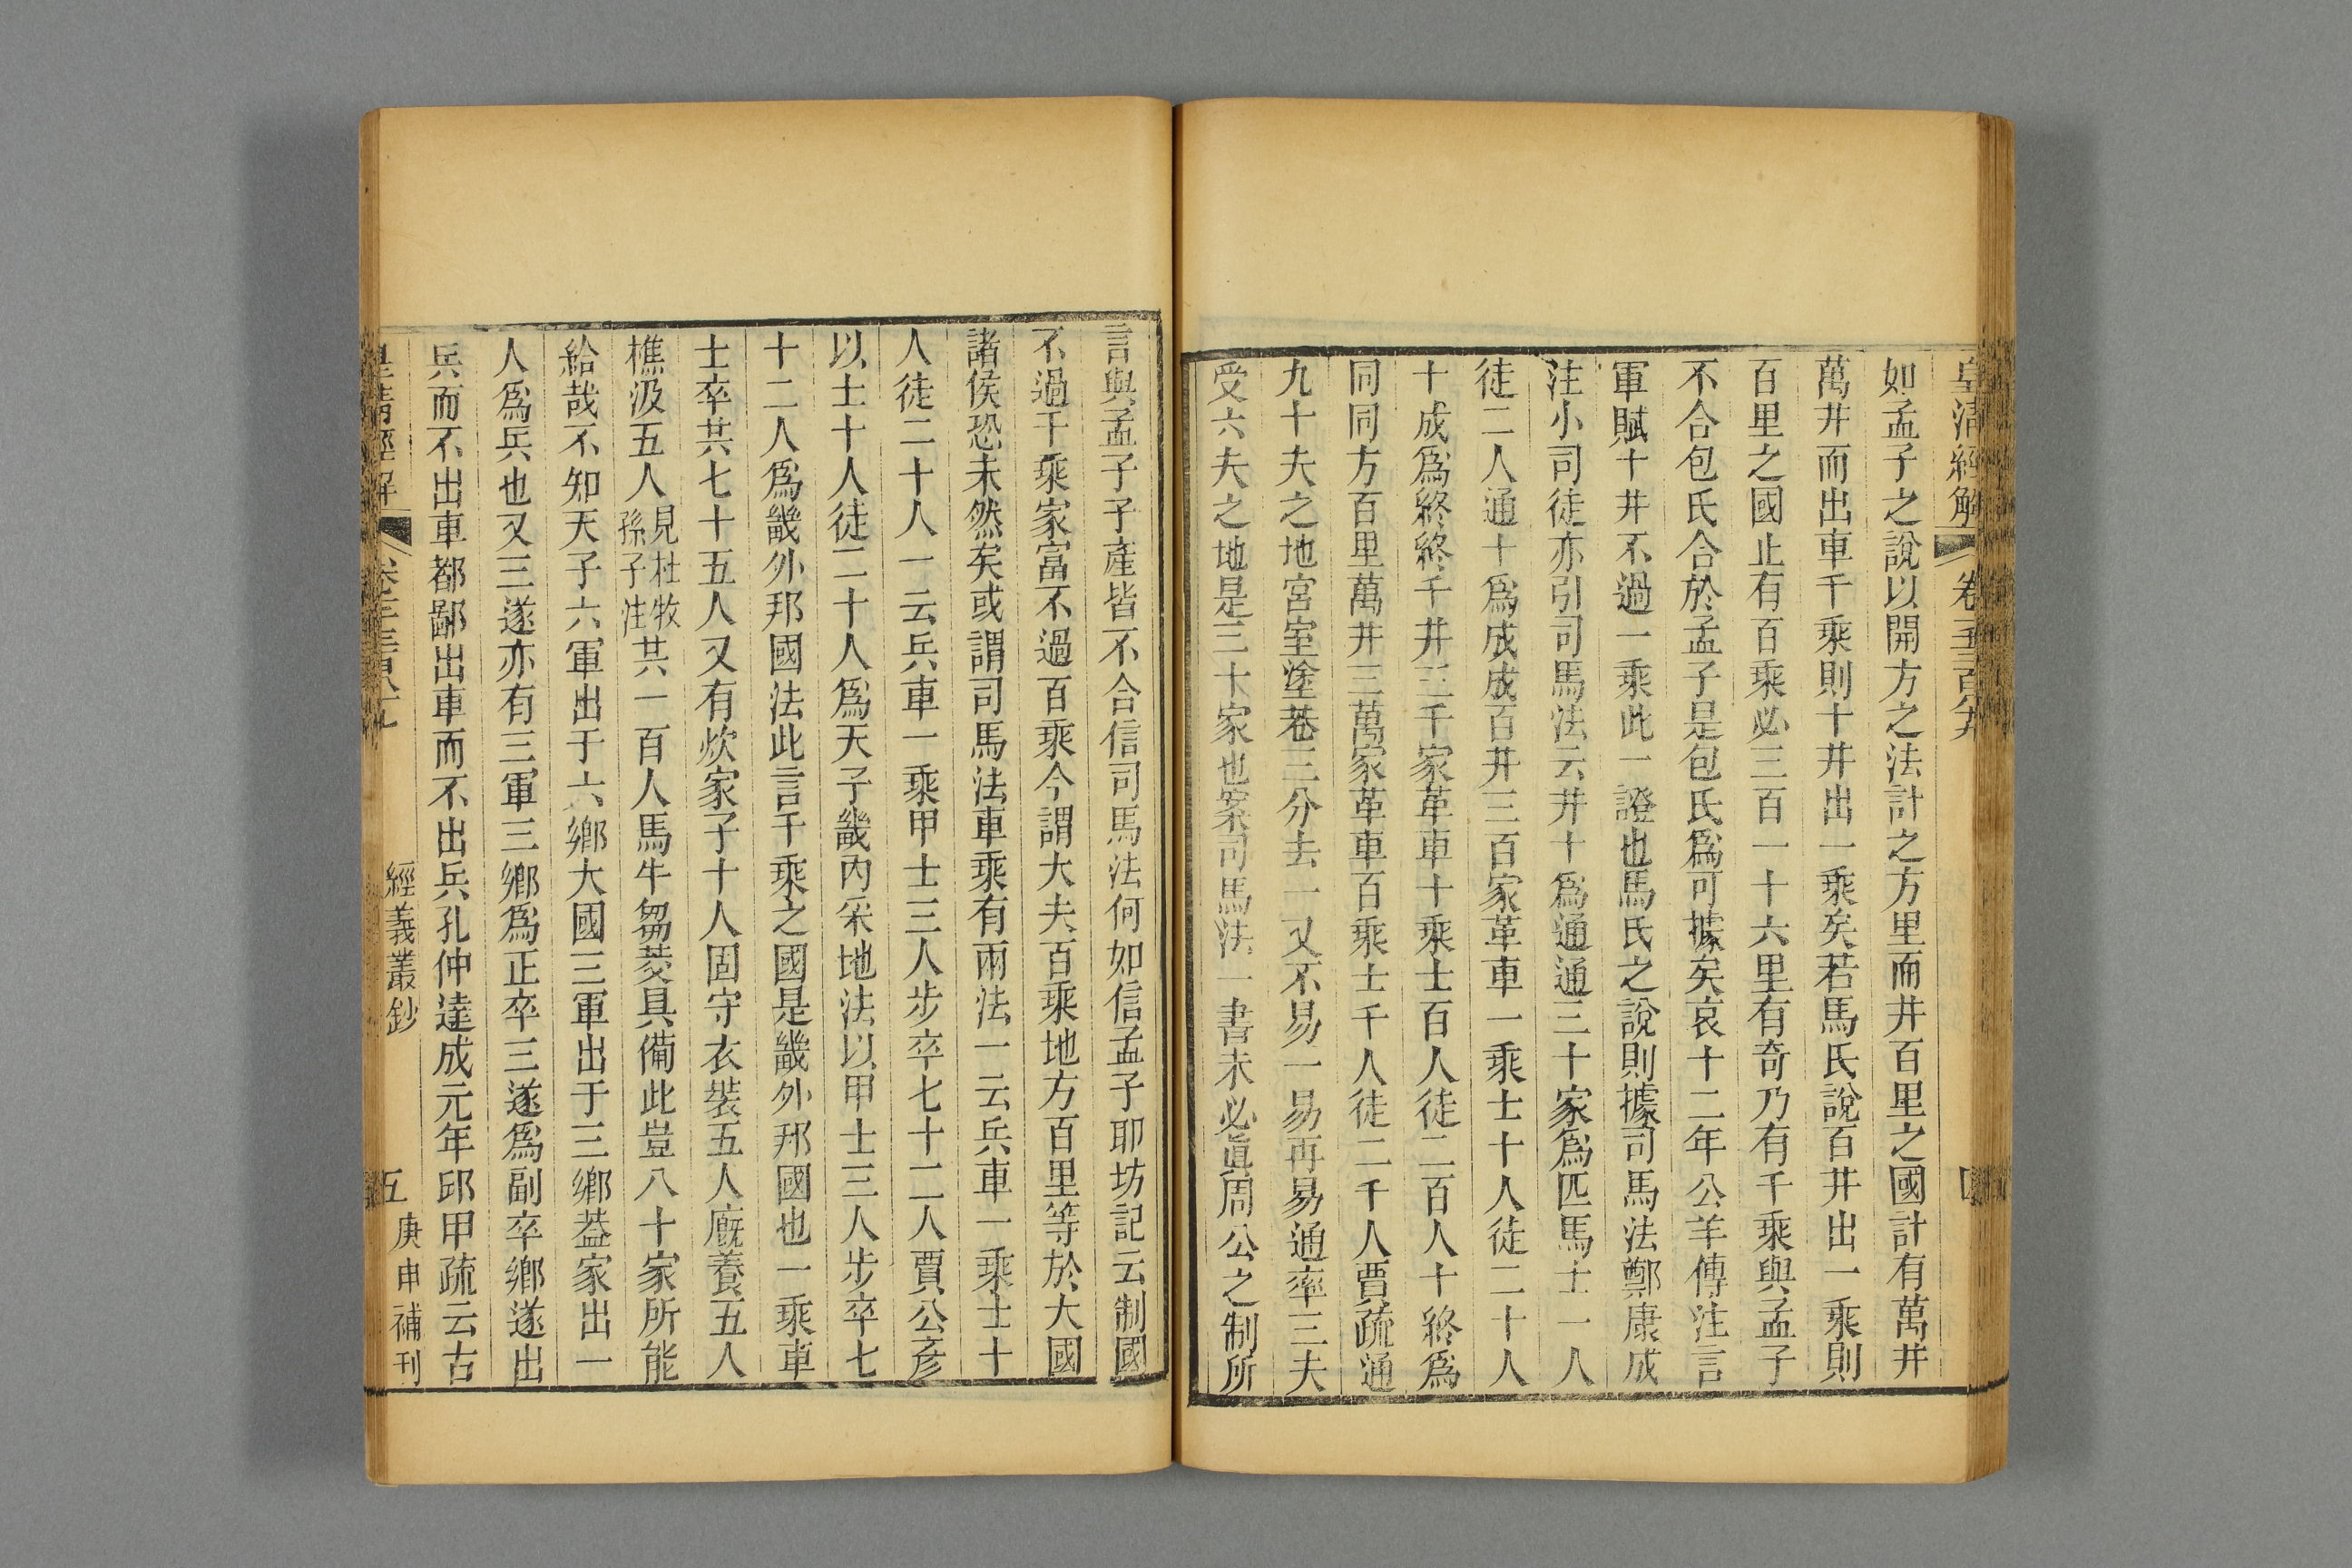 皇清經解
如孟子之說以開方之法計之方里而井百里之國計有萬井
萬井而出車千乘則十井出一乘矣若馬氏說百井出一乘則
百里之國止有百乘必三百一十六里有奇乃有千乘與孟子
不合包氏合於孟子是包氏爲可據矣哀十二年公羊傳注言
軍賦十井不過一乘此一證也馬氏之說則據司馬法鄭康成
注小司徒亦引司馬法云井十爲通通三十家爲匹馬士一人
徒二人通十爲成成百井三百家革車一乘士十人徒二十人
十成爲終終千井三千家革車十乘士百人徒二百人十終爲
同同方百里萬井三萬家革車百乘士千人徒二千人賈疏通
九十夫之地宮室塗巷三分去一又不易一易再易通率三夫
受六夫之地是三十家也案司馬法一書未必眞周公之制所
言與孟子子產皆不合信司馬法何如信孟子耶坊記云制國
不過千乘家富不過百乘今謂大夫百乘地方百里等於大國
諸侯恐未然矣或謂司馬法車乘有兩法一云兵車一乘士十
人徒二十人一云兵車一乘甲士三人步卒七十二人賈公彥
以士十人徒二十人爲天子畿內采地法以甲士三人步卒七
十二人爲畿外邦國法此言千乘之國是畿外邦國也一乘車
士卒共七十五人又有炊家子十人固守衣裝五人廄養五人
樵汲五人見杜牧孫子注共一百人馬牛芻茭具備此豈八十家所能
給哉不知天子六軍出于六鄉大國三軍出于三鄉葢家出一
人爲兵也又三遂亦有三軍三鄉爲正卒三遂爲副卒鄉遂出
兵而不出車都鄙出車而不出兵孔仲達成元年邱甲疏云古
皇清經解
經義叢鈔
五
庚申補刊